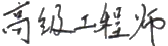 高级工程师